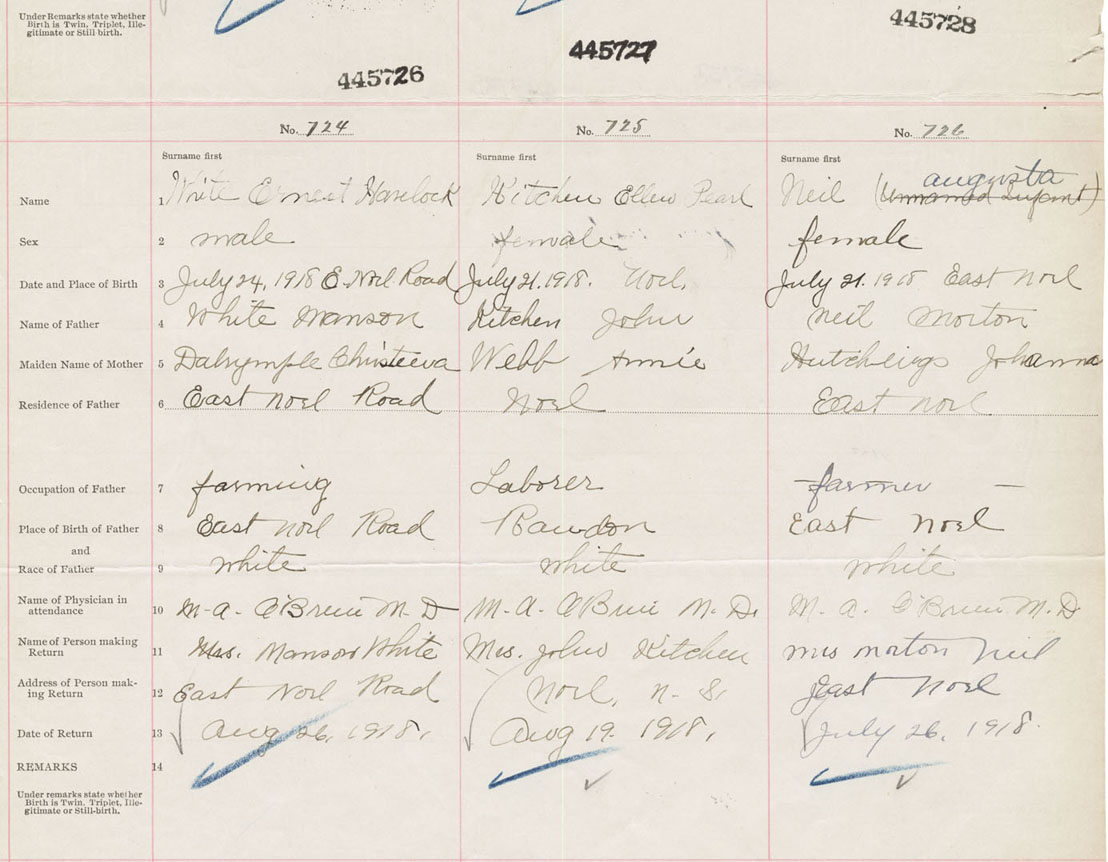 Under Remarks state whether
Birth is Twin, Triplet, Ille-
gitimate or Still birth.
445726
445727
445728
No. 724
No. 725
No. 726
Surname first
Surname first
Surname first
augusta
Name 1 White Ernest Havelock Kitchen Ellen Pearl Neil (Unnamed Infant)
Sex 2 male female female
Date and Place of Birth 3 July 24, 1918 E. Noel Road July 21. 1918. Noel. July 21. 1918 East Noel
Name of Father 4 White Manson Kitchen John Neil Morton
Maiden Name of Mother 5 Dalrymple Webb Annie Hutchings Johanna
Residence of Father 6 East Noel Road Noel East Noel
Occupation of Father 7 farming Laborer farmer —
Place of Birth of Father 8 East Noel Road Rawdon East Noel
and
Race of Father 9 white white white
Name of Physician in
attendance 10 M. A. O'Brien M. D M. A. O'Brien M. D. M. A. O'Brien M. D
Name of Person making
Return 11 Mrs. Manson White Mrs. John Kitchen Mrs Morton Neil
Address of Person mak-
ing Return 12 East Noel Road Noel, N. S. East Noel
Date of Return 13 Aug 26, 1918. Aug 19. 1918. July 26, 1918.
REMARKS 14
Under remarks state whether
Birth is Twin, Triplet, Ille-
gitimate or Still-birth.